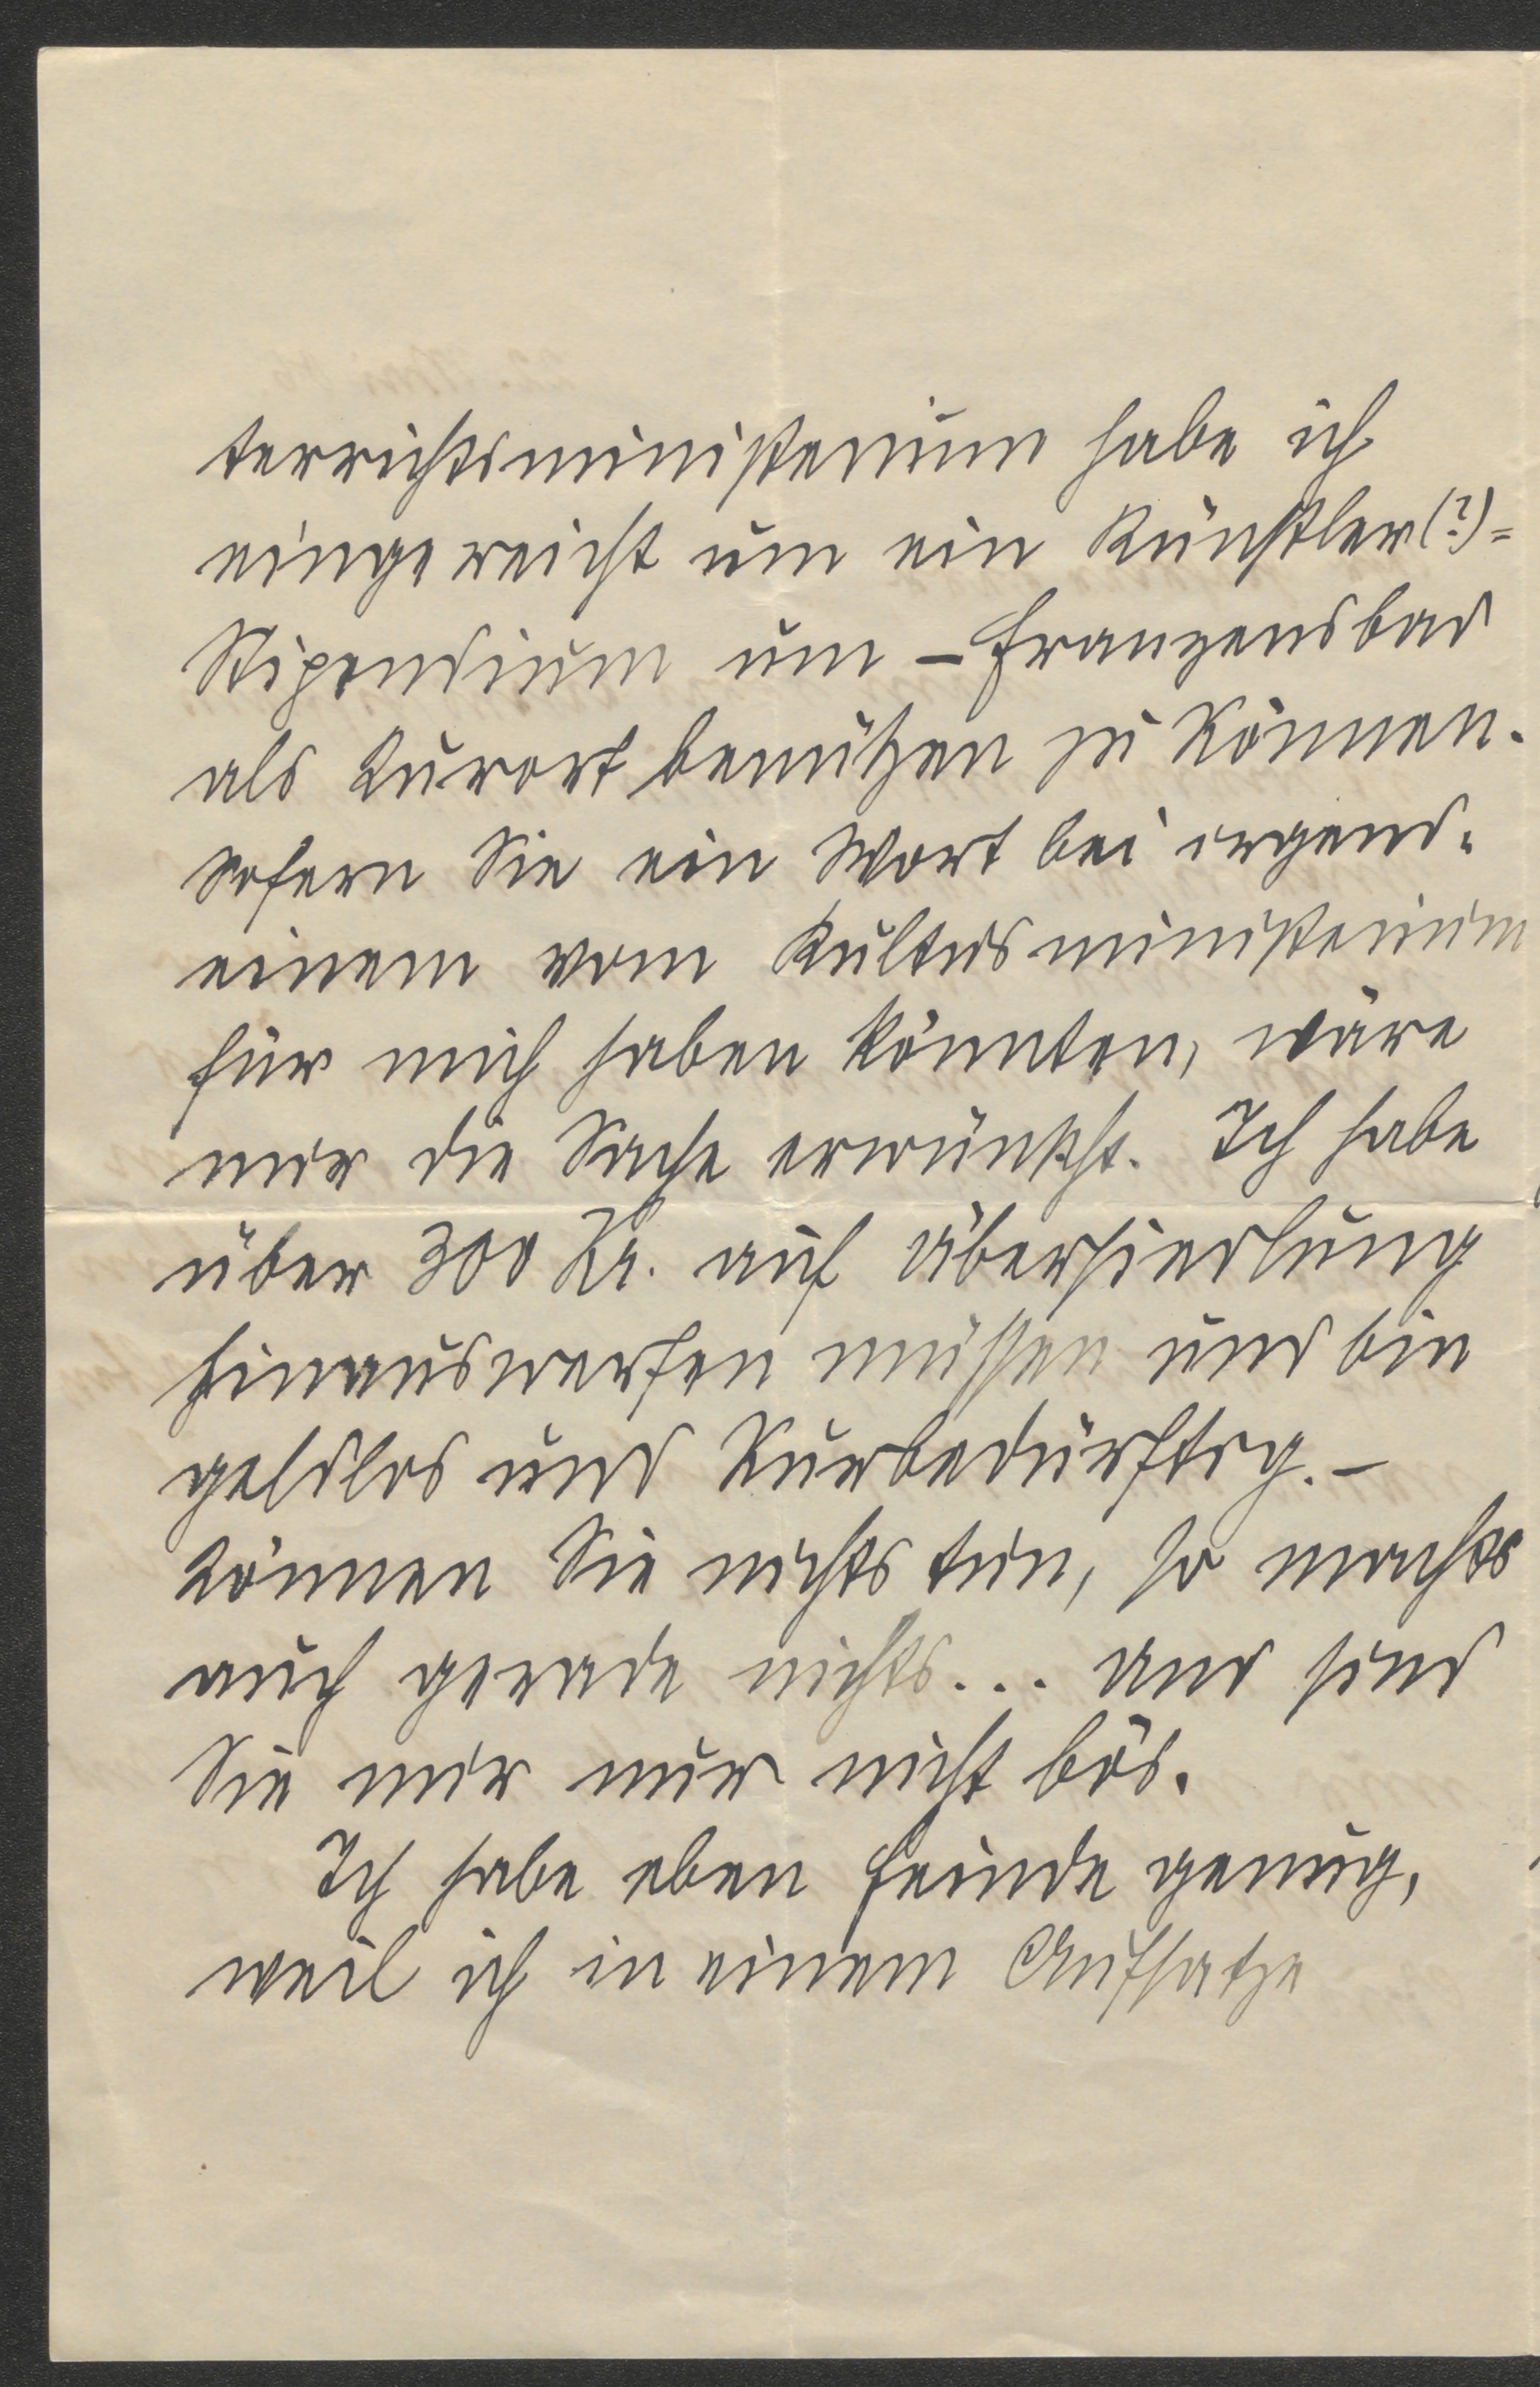 terrichtsministerium habe ich
eingereicht um ein Künstler(?)=
Stipendium um – Franzensbad
als Kurort benützen zu können.
Sofern Sie ein Wort bei irgend-
einem vom Kultusministerium
für mich haben könnten, wäre
mir die Sache erwünscht. Ich habe
über 300 Kr. auf Übersiedlung
hinauswerfen müssen und bin
geldlos und kurbedürftig. –
Können Sie nichts tun, so machts
auch gerade nichts... und sind
Sie mir nur nicht bös.
Ich habe eben Feinde genug,
weil ich in einem Aufsatze